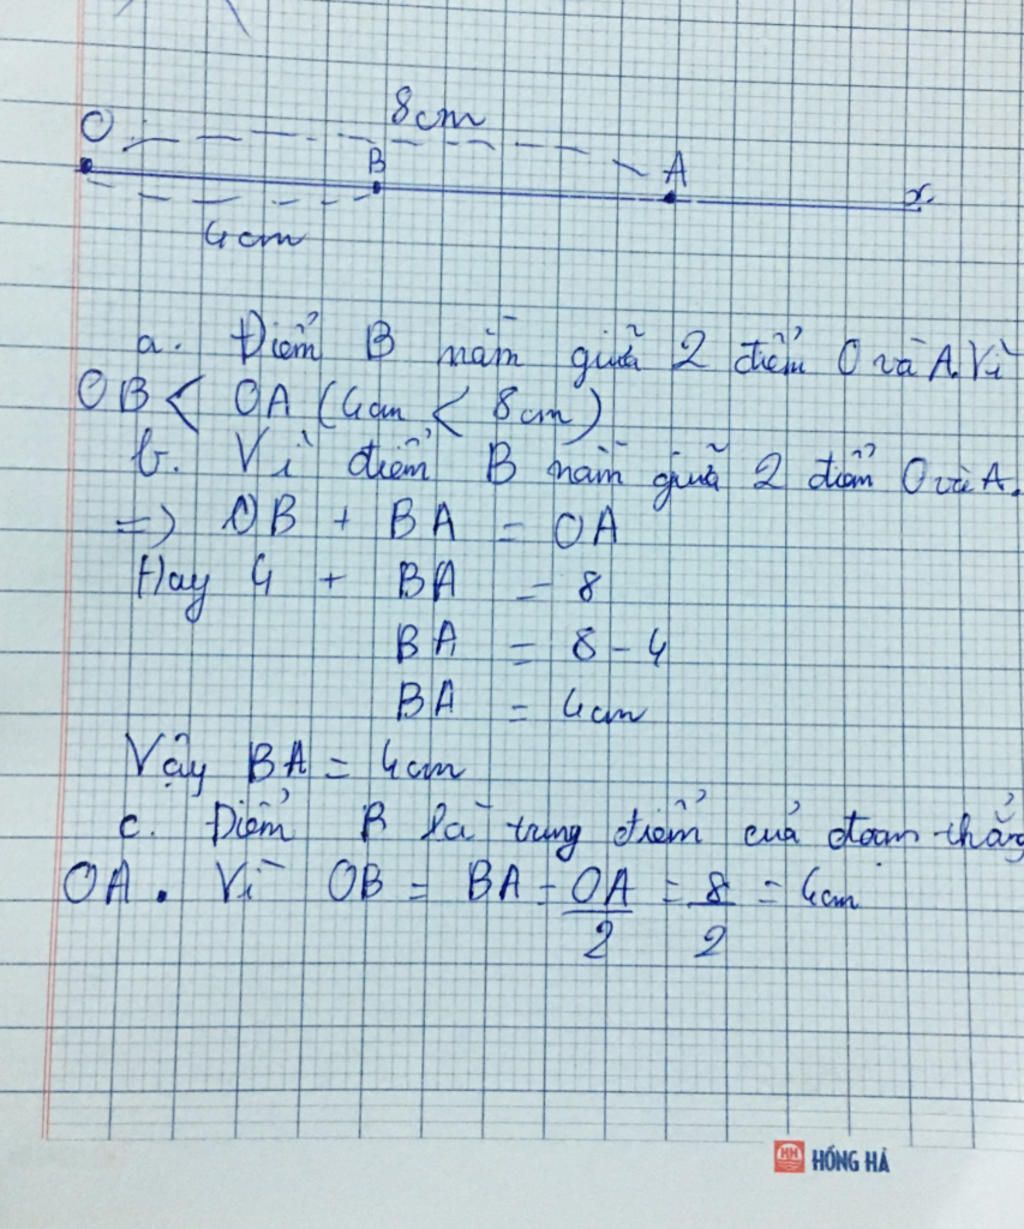 8cm
O B A x
4cm
a. Điểm B nằm giữa 2 điểm O và A. Vì
OB < OA (4cm < 8cm)
b. Vì điểm B nằm giữa 2 điểm O và A.
=> OB + BA = OA
Hay 4 + BA = 8
BA = 8 - 4
BA = 4cm
Vậy BA = 4cm
c. Điểm B là trung điểm của đoạn thẳng
OA. Vì OB = BA = OA/2 = 8/2 = 4cm
HH HỒNG HÀ